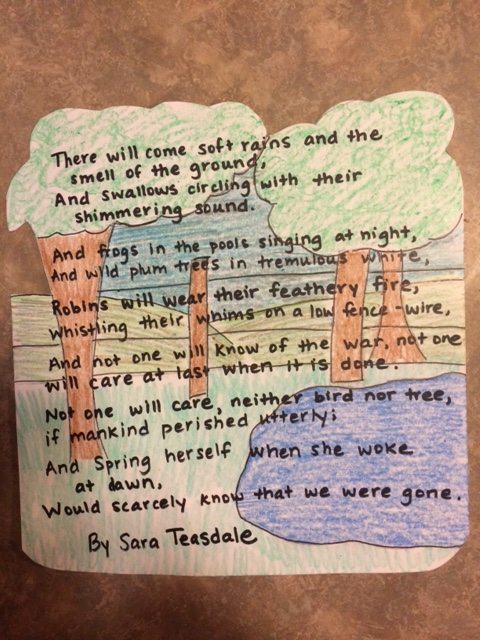 There will come soft rains and the
smell of the ground,
And swallows circling with their
shimmering sound.
And frogs in the pools singing at night,
And wild plum trees in tremulous white,
Robins will wear their feathery fire,
Whistling their whims on a low fence-wire,
And not one will know of the war, not one
will care at last when it is done.
Not one will care, neither bird nor tree,
if mankind perished utterly;
And Spring herself when she woke
at dawn,
Would scarcely know that we were gone.
By Sara Teasdale